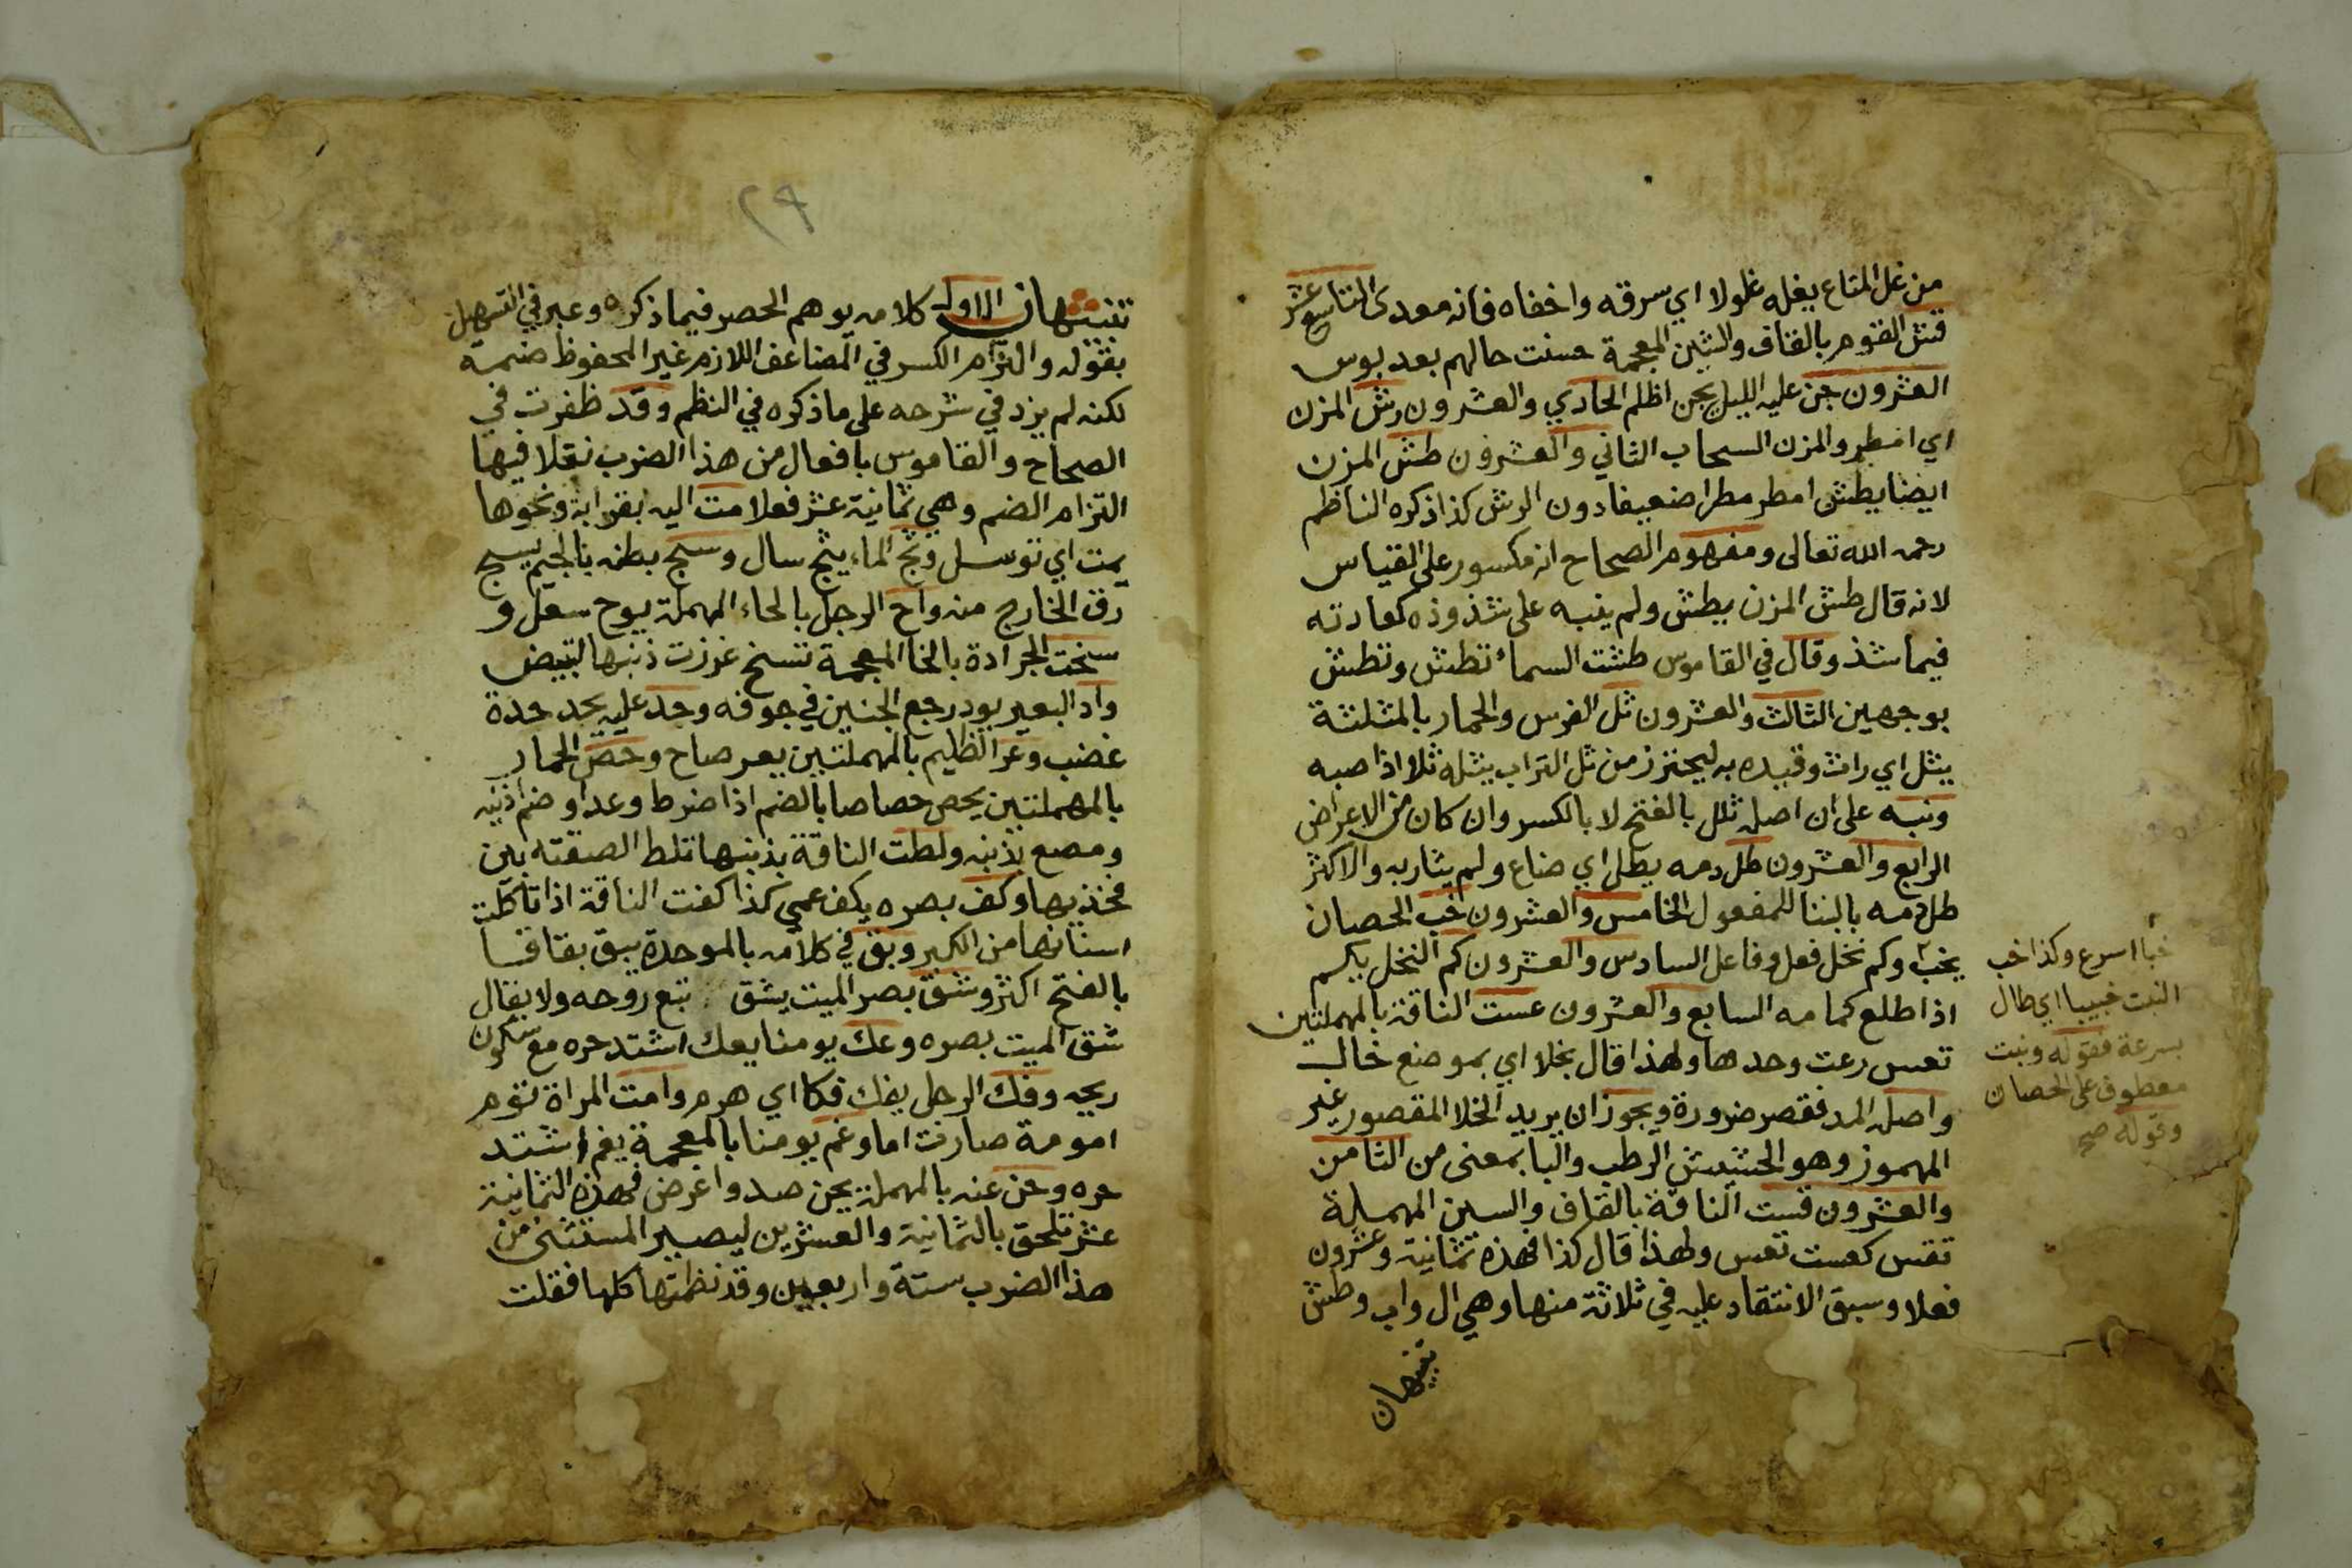 من غل المتاع يغله غلولا اي سرقه واخفاه فانه معدى التاسع عشر
قش القوم بالقاف والشين المعجمة حسنت حالهم بعد بوس
العشرون جن عليه الليل يجن اظلم الحادي والعشرون رش المزن
اي امطر والمزن السحاب الثاني والعشرون طش المزن
ايضا يطش امطر مطرا ضعيفا دون الرش كذا ذكره الناظم
رحمه الله تعالى ومفهوم الصحاح انه مكسور على القياس
لانه قال طش المزن يطش ولم ينبه على شذوذه كعادته
فيما شذ وقال في القاموس طشت السماء تطش وتطش
بوجهين الثالث والعشرون ثل الفرس والحمار بالمثلثة
يثل اي راث وقيده به ليحترز من ثل التراب يثله ثلا اذا صبه
ونبه على ان اصله ثلل بالفتح لا بالكسر وان كان من الاعراض
الرابع والعشرون طل دمه يطل اي ضاع ولم يثار به والاكثر
طل دمه بالبنا للمفعول الخامس والعشرون خب الحصان
يخب وكم نخل فعل وفاعل السادس والعشرون كم النخل يكم
اذا طلع كمامه السابع والعشرون عست الناقة بالمهملتين
تعس رعت وحدها ولهذا قال بخلا اي بموضع خال
واصله المد فقصر ضرورة ويجوز ان يريد الخلا المقصور غير
المهموز وهو الحشيش الرطب والبا بمعنى من الثامن
والعشرون قست الناقة بالقاف والسين المهملة
تقس كعست تعس ولهذا قال كذا فهذه ثمانية وعشرون
فعلا وسبق الانتقاد عليه في ثلاثة منها وهي ال واب وطش
تنبيهان
خبا اسرع وكذا خب
النبت خبيبا اي طال
بسرعة فقوله ونبت
معطوف على الحصان
وقوله صح
٢٩
تنبيهان الاول كلامه يوهم الحصر فيما ذكره وعبر في التسهيل
بقوله والتزام الكسر في المضاعف اللازم غير المحفوظ ضمه
لكنه لم يزد في شرحه على ما ذكره في النظم وقد ظفرت في
الصحاح والقاموس بافعال من هذا الضرب نقلا فيها
التزام الضم وهي ثمانية عشر فعلا مت اليه بقرابة ونحوها
يمت اي توسل وثج الماء يثج سال وسج بطنه بالجيم يسج
رق الخارج منه واح الرجل بالحاء المهملة يوح سعل و
سخت الجرادة بالخا المعجمة تسخ غرزت ذنبها لتبيض
واد البعير يود رجع الحنين في جوفه وحد عليه يحد حدة
غضب وعر الظليم بالمهملتين يعر صاح وحص الحمار
بالمهملتين يحص حصاصا بالضم اذا ضرط وعدا وضم اذنيه
ومصع بذنبه ولطت الناقة بذنبها تلط الصقته بين
فخذيها وكف بصره يكف عمي كذا كفت الناقة اذا تاكلت
اسنانها من الكبر وبق في كلامه بالموحدة يبق بقاقا
بالفتح اكثر وشق بصر الميت يشق تبع روحه ولا يقال
شق الميت بصره وعك يومنا يعك اشتد حره مع سكون
ريحه وفك الرجل يفك فكا اي هرم وامت المراة تؤم
امومة صارت اما وغم يومنا بالمعجمة يغم اشتد
حره وحن عنه بالمهملة يحن صد واعرض فهذه الثمانية
عشر تلحق بالثمانية والعشرين ليصير المستثنى من
هذا الضرب ستة واربعين وقد نظمتها كلها فقلت